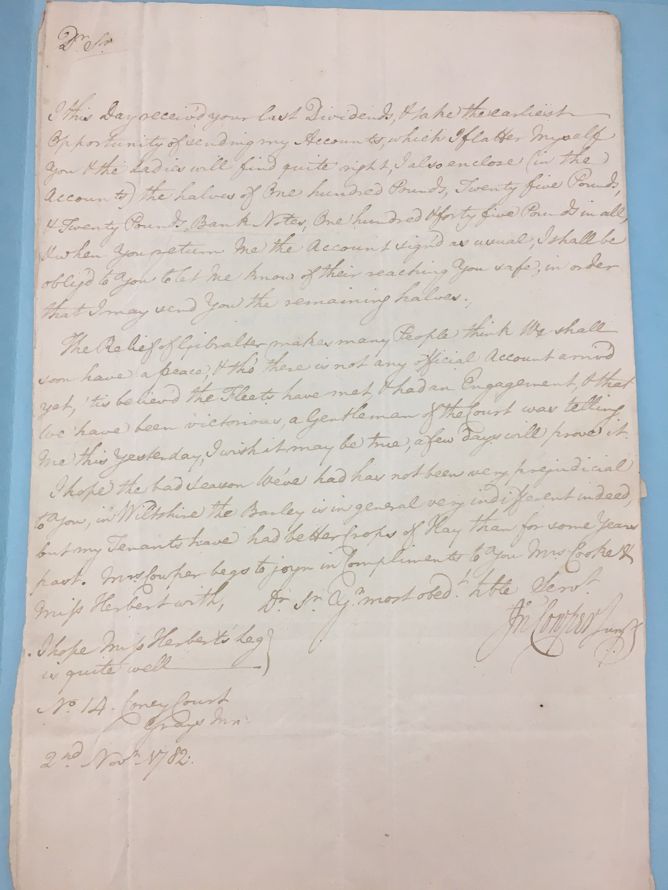 Dr. Sr.
I this Day receiv'd your last Dividends, & take the earliest
Opportunity of sending my Accounts, which I flatter Myself
You & the Ladies will find quite right, I also enclose (in the
Accounts) the halves of One hundred Pounds, Twenty five Pounds,
& Twenty Pounds, Bank Notes, One hundred & forty five Pounds in all,
& when You return Me the Account sign'd as usual, I shall be
oblig'd to You to let Me know of their reaching You safe, in order
that I may send You the remaining halves.
The Relief of Gibralter makes many People think We shall
soon have a peace, & tho' there is not any official Account arriv'd
yet, 'tis believ'd the Fleets have met, & had an Engagement, & that
We have been victorious, a Gentleman of the Court was telling
Me this Yesterday, I wish it may be true, a few Days will prove it.
I hope the bad season We've had has not been very prejudicial
to You, in Wiltshire the Barley is in general very indifferent indeed,
but my Tenants have had better Crops of Hay than for some Years
past. Mrs. Cowper begs to joyn in Compliments to You Mrs Cooke &
Miss Herbert with, Dr. Sr. Yr. most obedt. hble Servt.
Jn Cowper Junr.
I hope Miss Herbert's Leg
is quite well
No. 14. Coney Court
Grays Inn
2nd Novr. 1782.